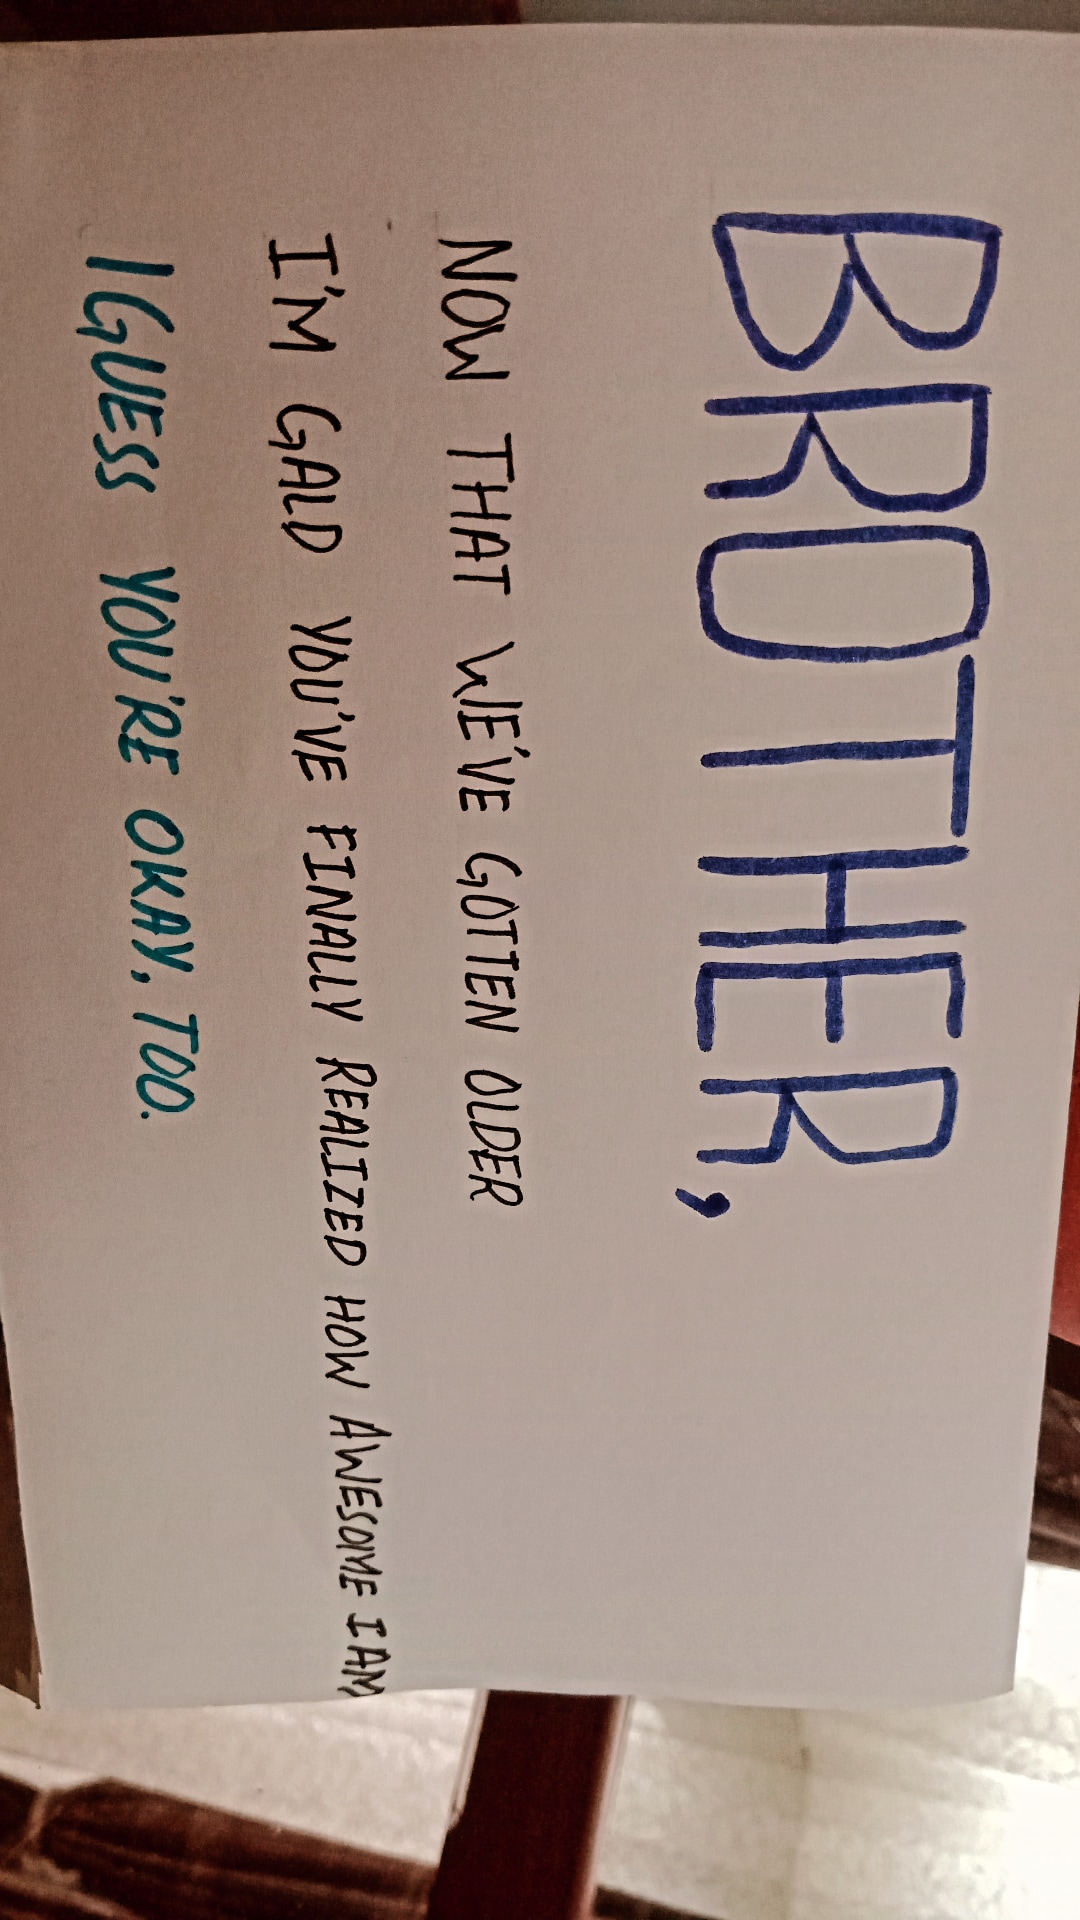 BROTHER,
NOW THAT WE'VE GOTTEN OLDER
I'M GALD YOU'VE FINALLY REALIZED HOW AWESOME I AM
I GUESS YOU'RE OKAY, TOO.